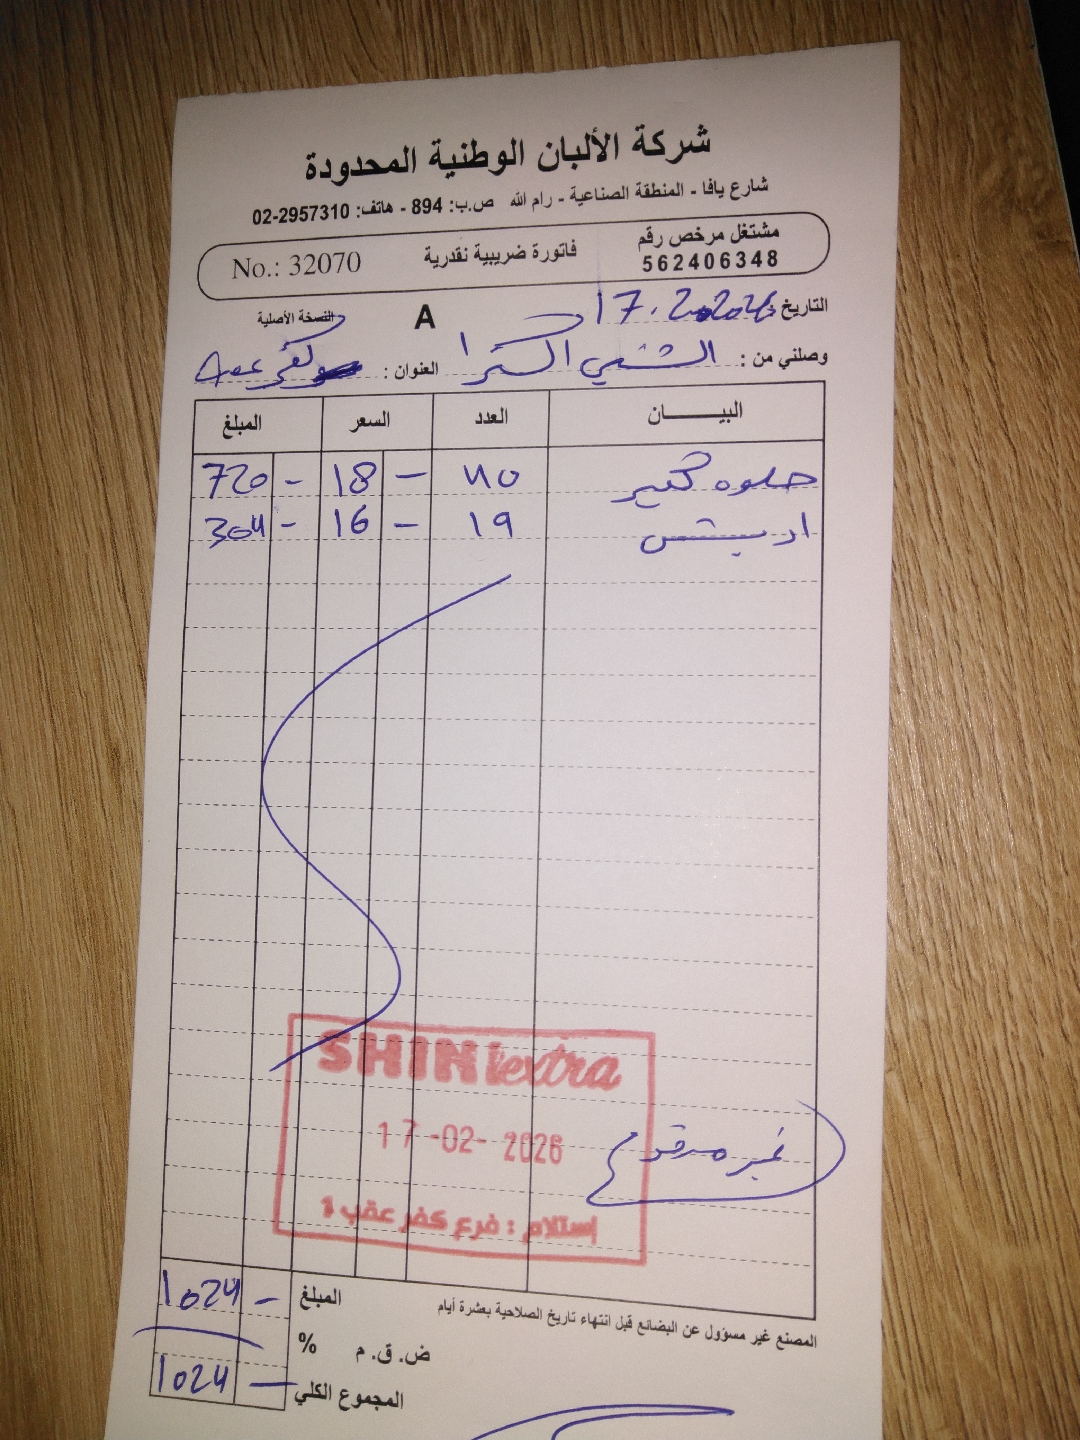 شركة الألبان الوطنية المحدودة
شارع يافا - المنطقة الصناعية - رام الله ص.ب: 894 - هاتف: 02-2957310
مشتغل مرخص رقم
562406348
فاتورة ضريبية نقدية
No.: 32070
التاريخ: 17.2.2026
A
النسخة الأصلية
وصلني من : الشني اكسترا
العنوان : كفر عقب
البيـــــــان العدد السعر المبلغ
حلوه كبير 40 18 - 720 -
19 16 - 304 -
SHINI extra
17-02-2026
إستلام : فرع كفر عقب 1
غير مرقوم
المبلغ 1024 -
المصنع غير مسؤول عن البضائع قبل انتهاء تاريخ الصلاحية بعشرة أيام
ض. ق. م %
المجموع الكلي 1024 -